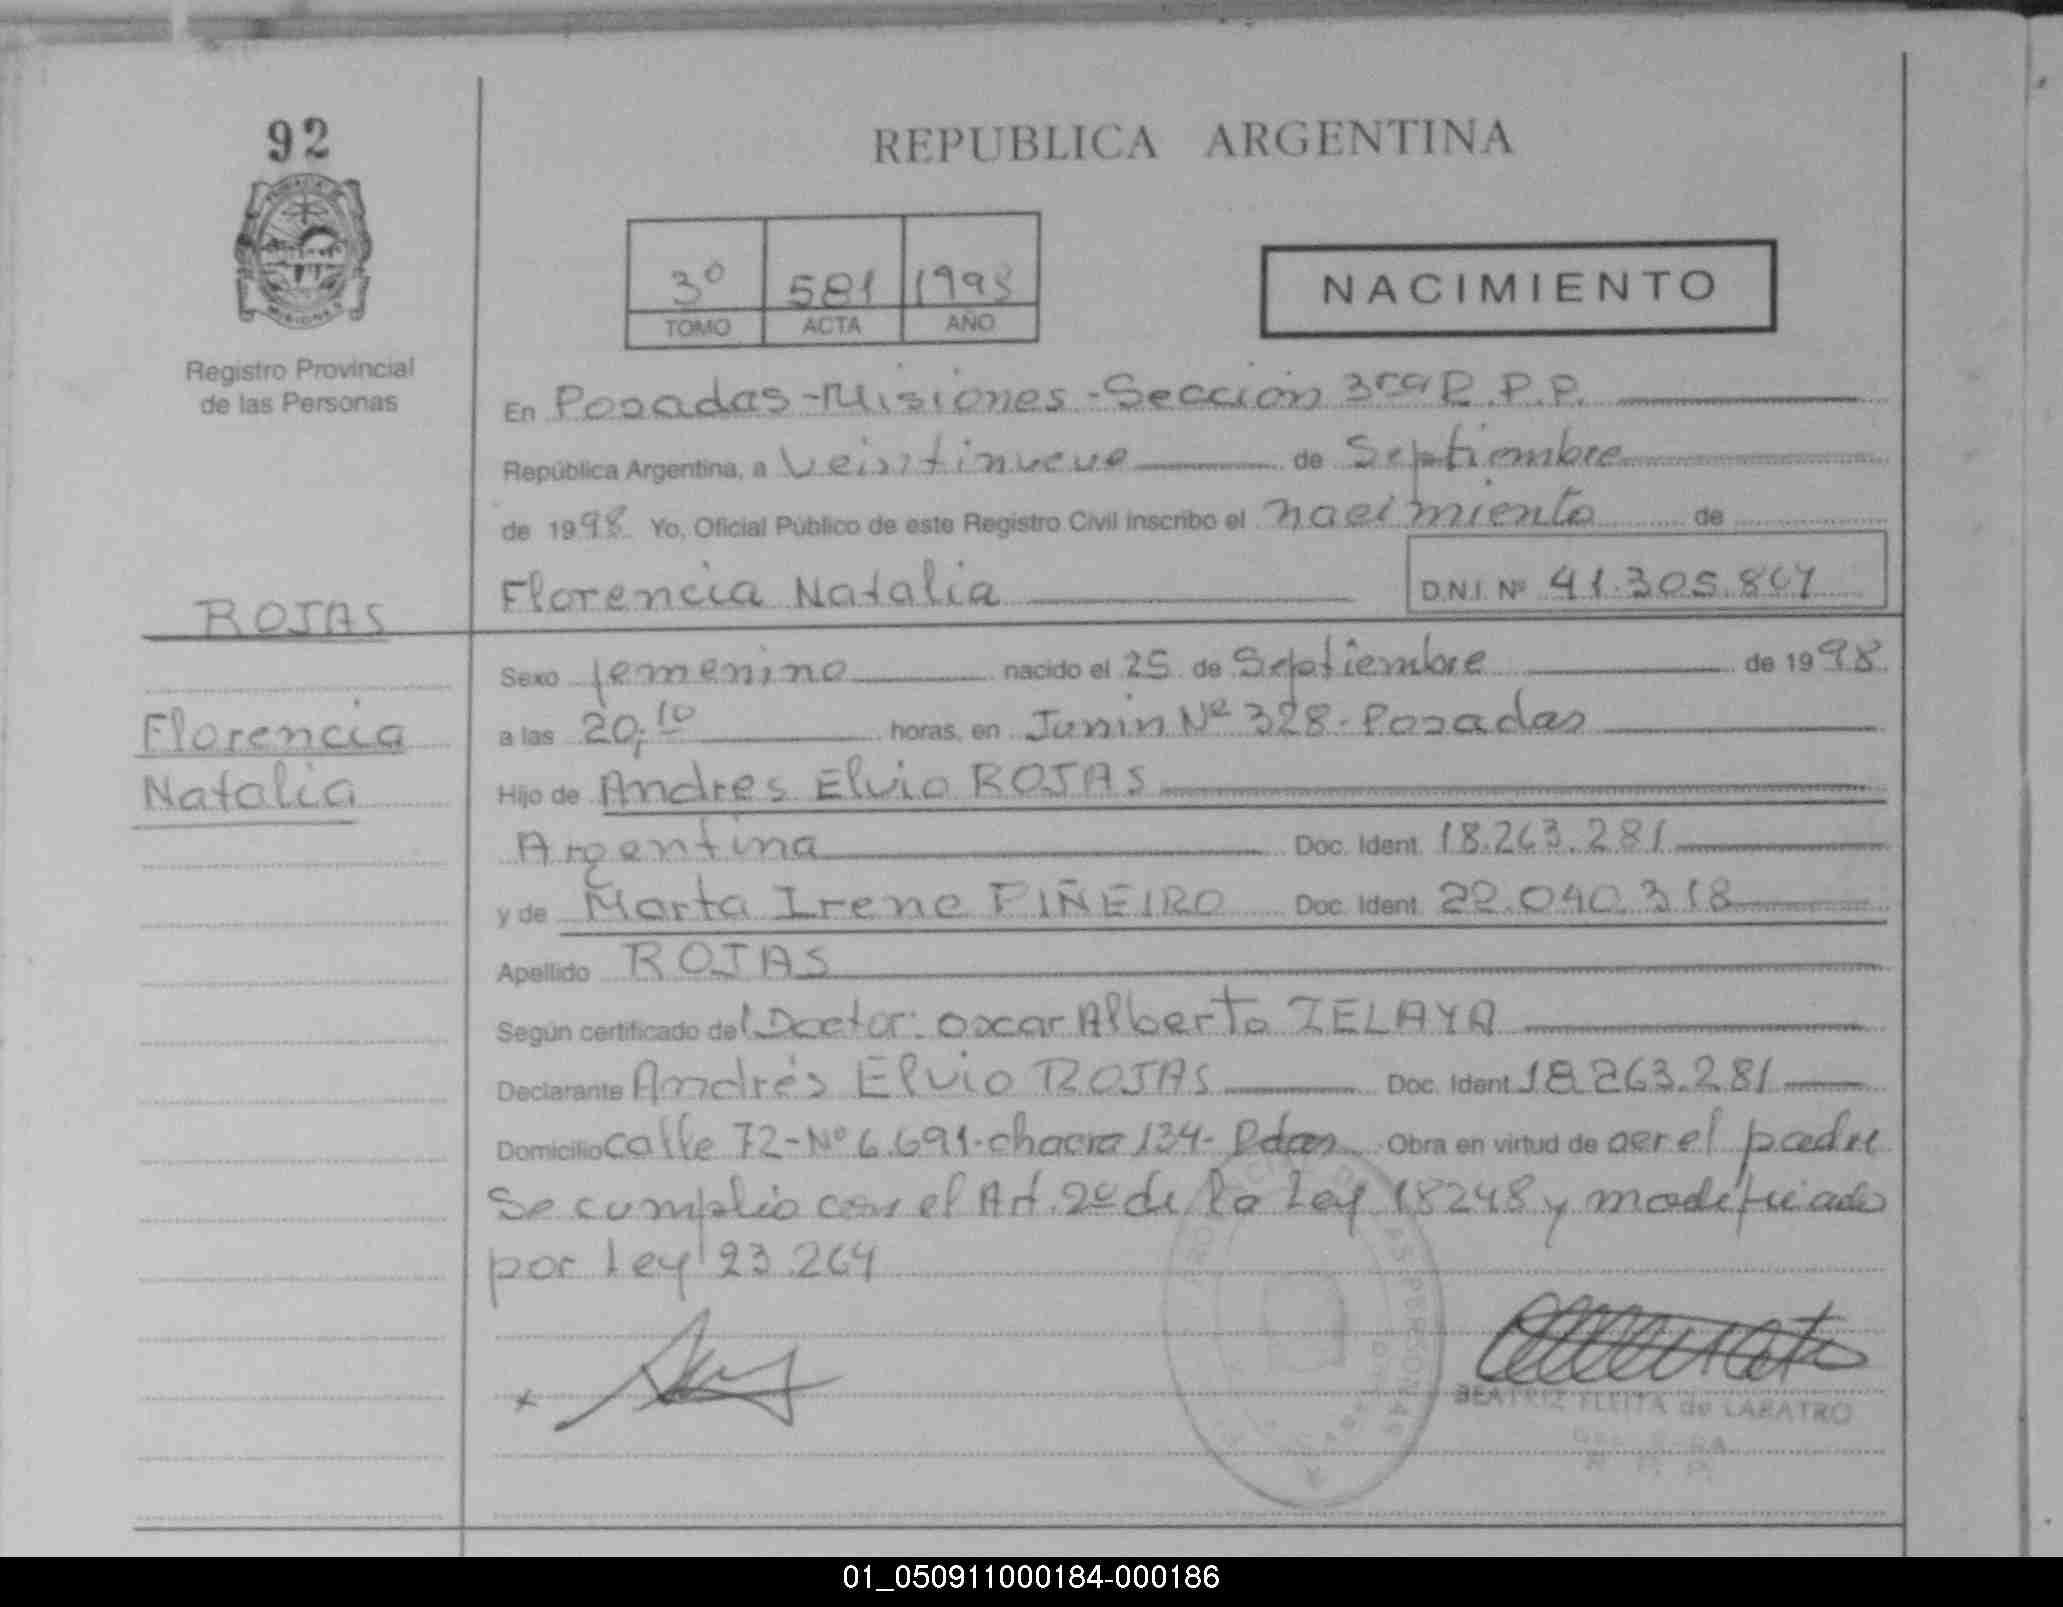 92
REPUBLICA ARGENTINA
3º 581 1998
TOMO ACTA AÑO
NACIMIENTO
Registro Provincial
de las Personas
En Posadas-Misiones-Sección 3ra R.P.P.
República Argentina, a Veintinueve de Septiembre
de 1998 Yo, Oficial Público de este Registro Civil inscribo el nacimiento de
Florencia Natalia D.N.I. Nº 41.305.867
ROJAS
Sexo femenino nacido el 25 de Septiembre de 1998
Florencia
a las 20,10 horas, en Junin Nº 328-Posadas
Natalia
Hijo de Andres Elvio ROJAS
Argentina Doc. Ident. 18.263.281
y de Marta Irene PIÑEIRO Doc. Ident. 22.040.318
Apellido ROJAS
Según certificado del Doctor: Oscar Alberto ZELAYA
Declarante Andrés Elvio ROJAS Doc. Ident. 18.263.281
Domicilio calle 72-Nº 6.691-chacra 134-Pdas Obra en virtud de ser el padre
Se cumplio con el Art. 2º de la Ley 18248 y modificado
por Ley 23.264
BEATRIZ FLEITA de LABATRO
01_050911000184-000186